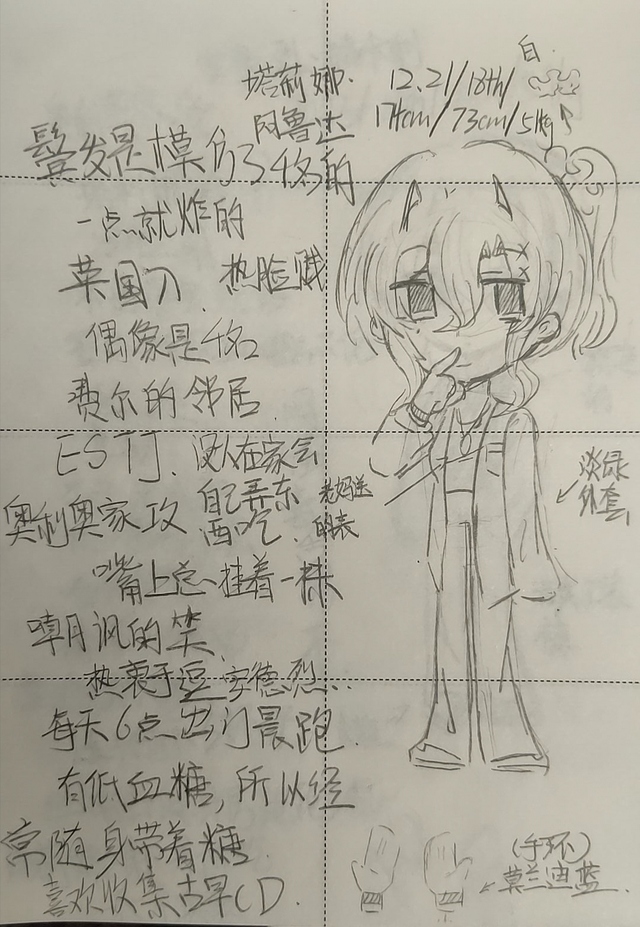 白.
塔莉娜.
阿鲁达
12.21/18th/
174cm/73cm/51kg
鬓发是模仿了铭的
一点就炸的
英国刀. 热脸贼
偶像是铭
费尔的邻居.
ESTJ. 没人在家会
自己弄东
西吃.
奥利奥家攻
老妈送
的表
淡绿
外套
嘴上总挂着一抹
嘲讽的笑
热衷于逗安德烈..
每天6点出门晨跑.
有低血糖,所以经
常随身带着糖.
喜欢收集古早CD.
(手环)
莫兰迪蓝